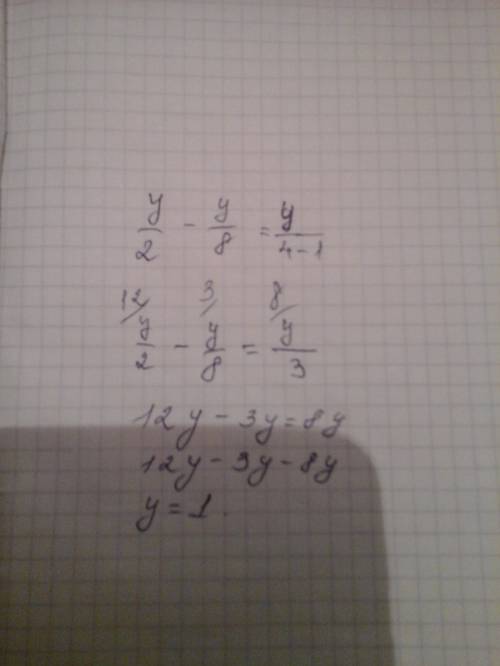 y/2 - y/8 = y/(4-1)
12/ 3/ 8/
y/2 - y/8 = y/3
12y - 3y = 8y
12y - 3y - 8y
y = 1.